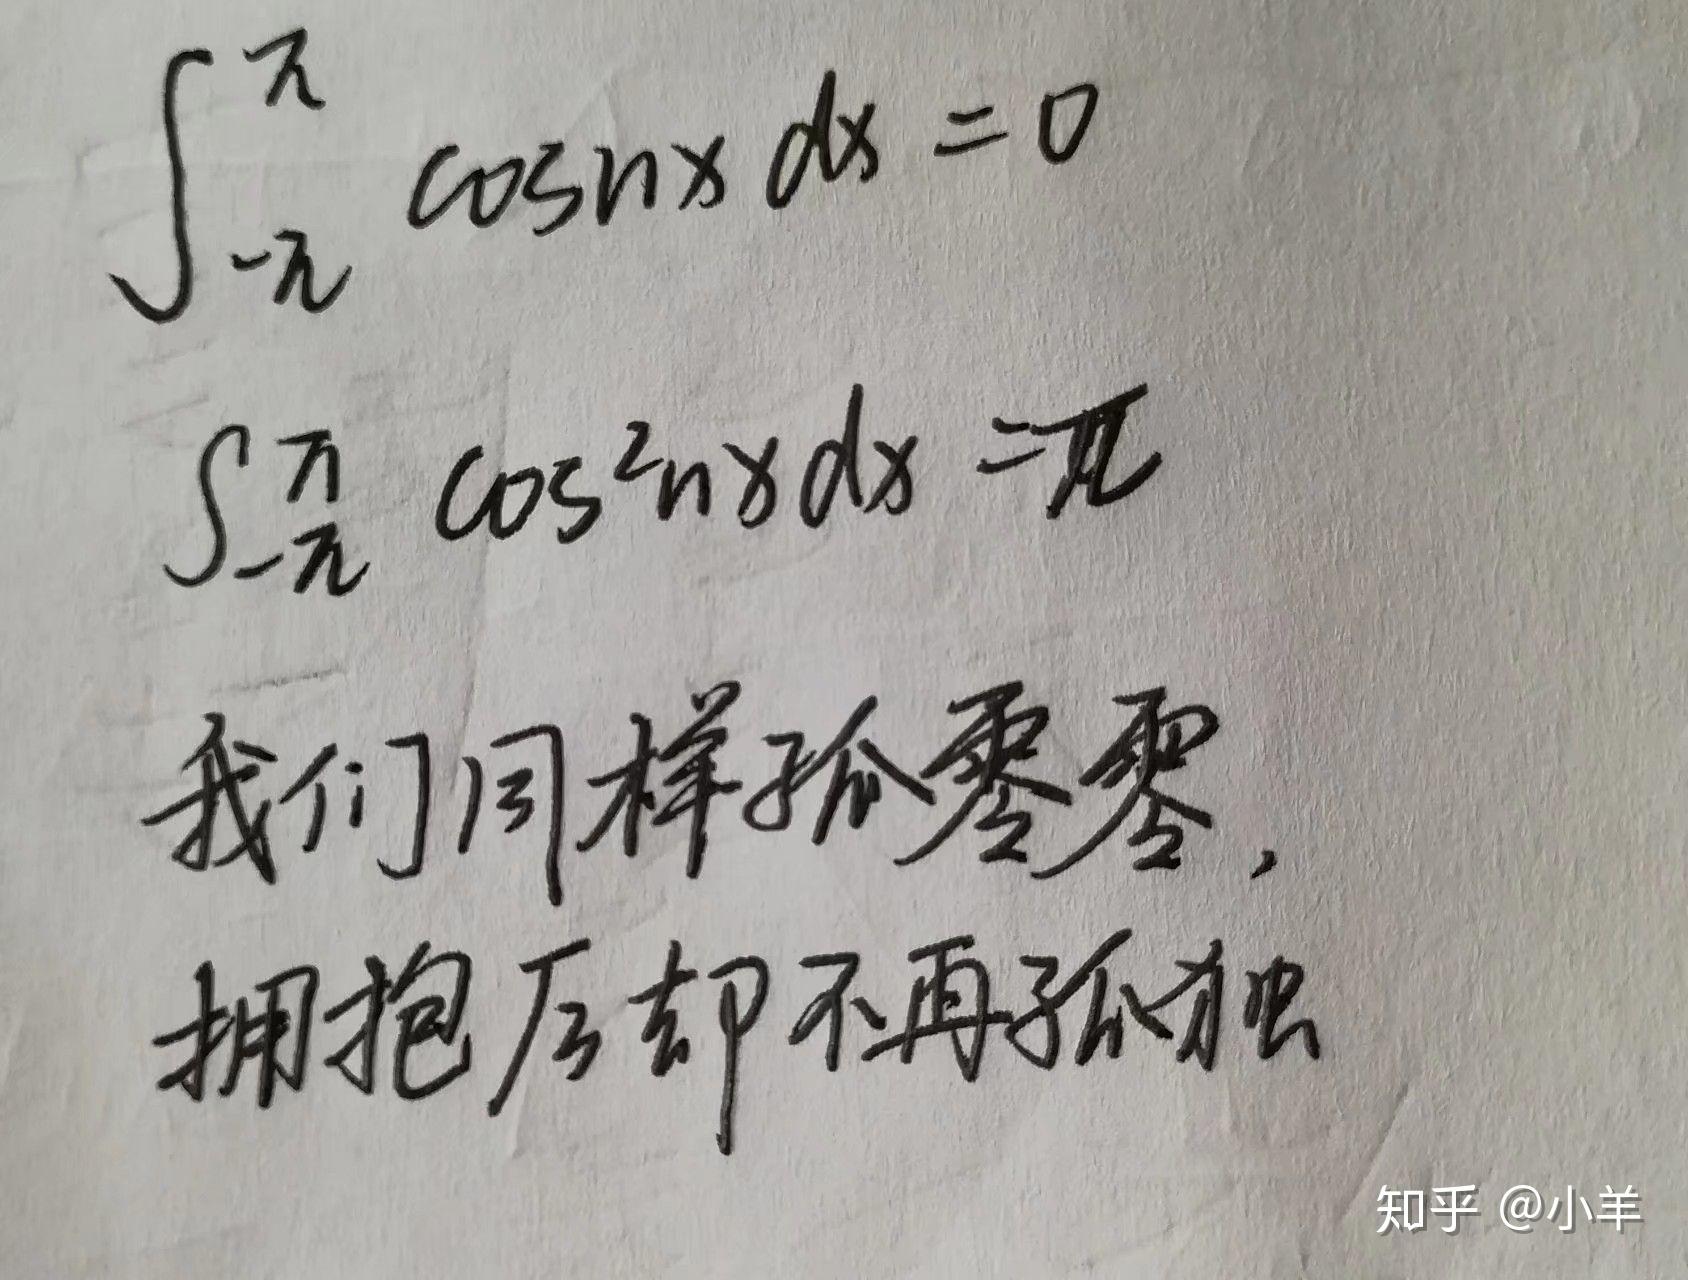 ∫_{-π}^{π} cosnx dx = 0
∫_{-π}^{π} cos²nx dx = π
我们同样孤零零，
拥抱后却不再孤独
知乎 @小羊